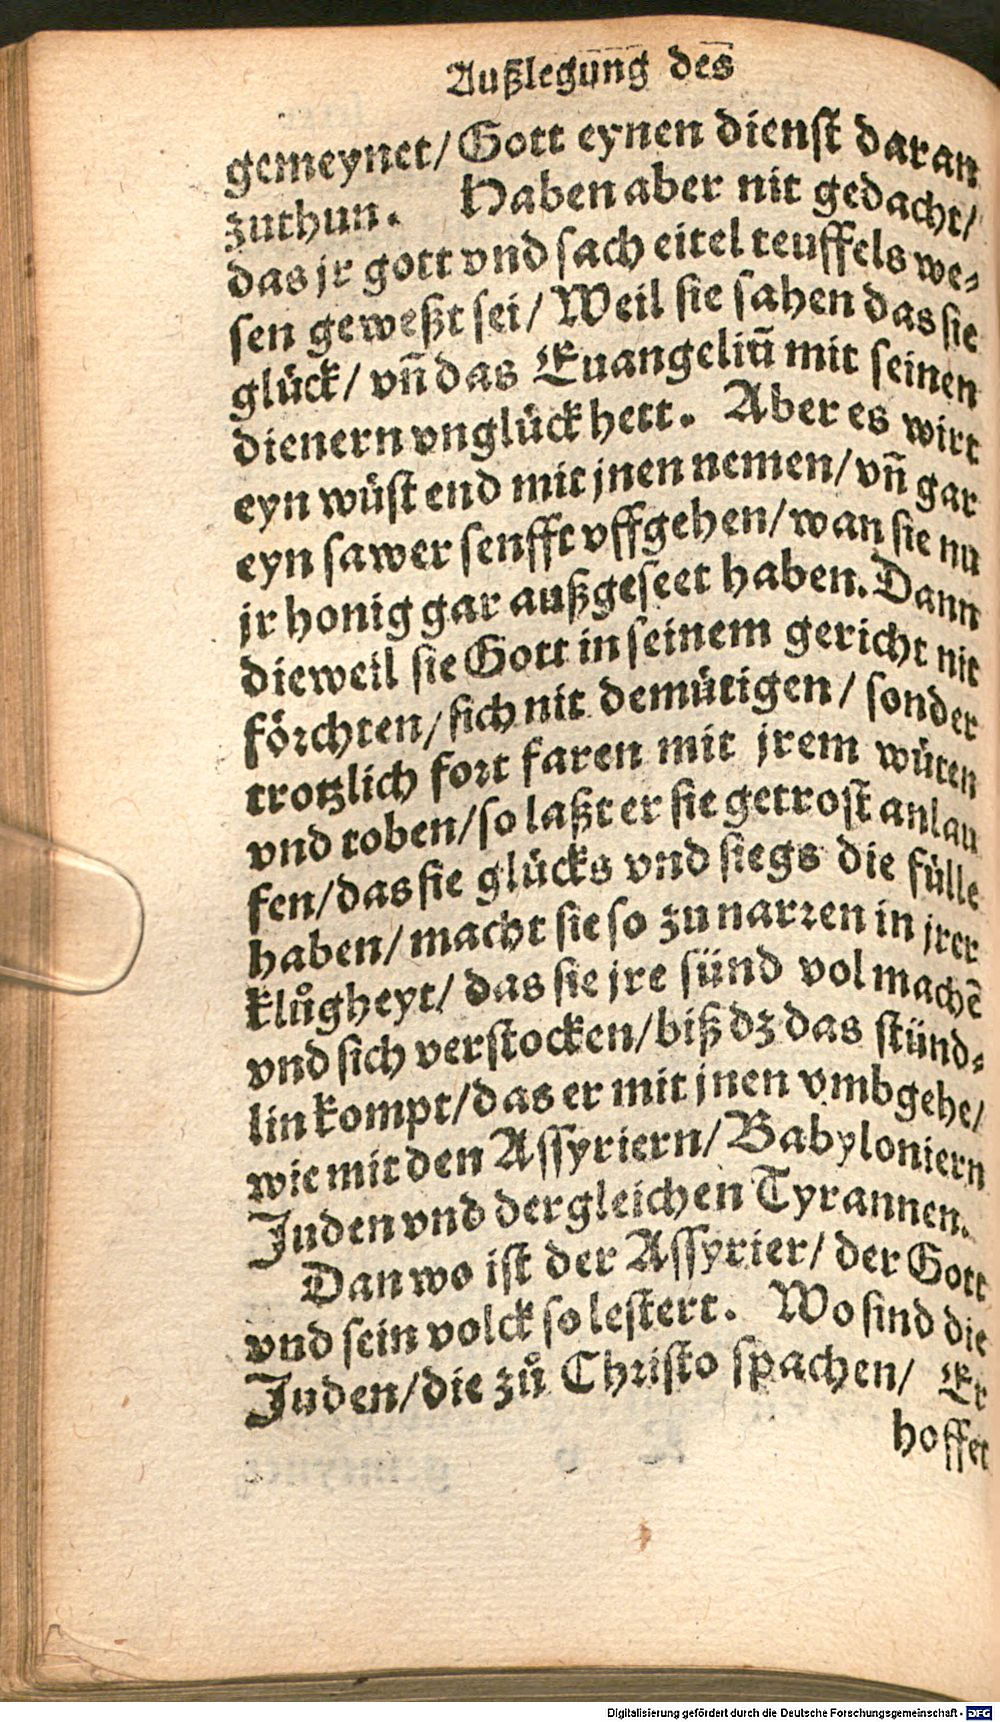 Außlegung des
gemeynet/ Gott eynen dienst daran
zuthun. Haben aber nit gedacht/
das jr gott vnd sach eitel teuffels we⸗
sen geweßt sei/ Weil sie sahen das sie
glück/ vñ das Euangeliũ mit seinen
dienern vnglück hett. Aber es wirt
eyn wüst end mit jnen nemen/ vñ gar
eyn sawer senfft vffgehen/ wan sie nu
jr honig gar außgeseet haben. Dann
dieweil sie Gott in seinem gericht nit
förchten/ sich nit demütigen/ sonder
trotzlich fort faren mit jrem wüten
vnd toben/ so laßt er sie getrost anlau
fen/ das sie glücks vnd siegs die fülle
haben/ macht sie so zu narren in jrer
klůgheyt/ das sie jre sünd vol machẽ
vnd sich verstocken/ biß dz das stünd⸗
lin kompt/ das er mit jnen vmbgehe/
wie mit den Assyriern/ Babyloniern
Juden vnd dergleichen Tyrannen.
Dan wo ist der Assyrier/ der Gott
vnd sein volck so lestert. Wo sind die
Juden/ die zů Christo spachen/ Er
hoffet
Digitalisierung gefördert durch die Deutsche Forschungsgemeinschaft - DFG